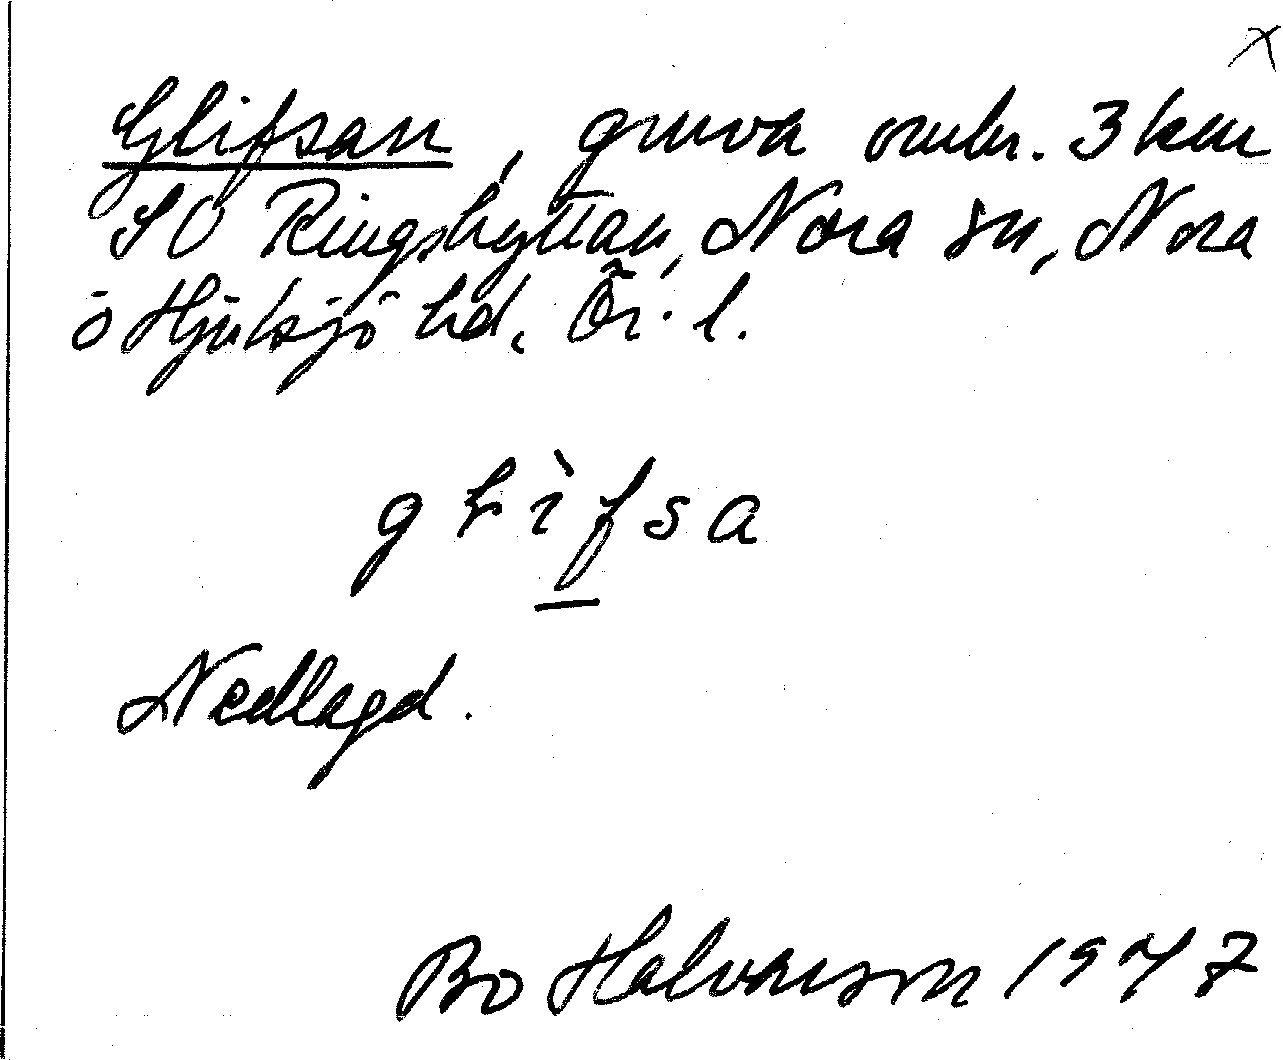 x
Glifsan, gruva omkr. 3 km
SO Ringshyttan, Nora sn, Nora
o Hjulsjö hd, Ör. l.
glìfsa
Nedlagd.
Bo Halvarson 1947